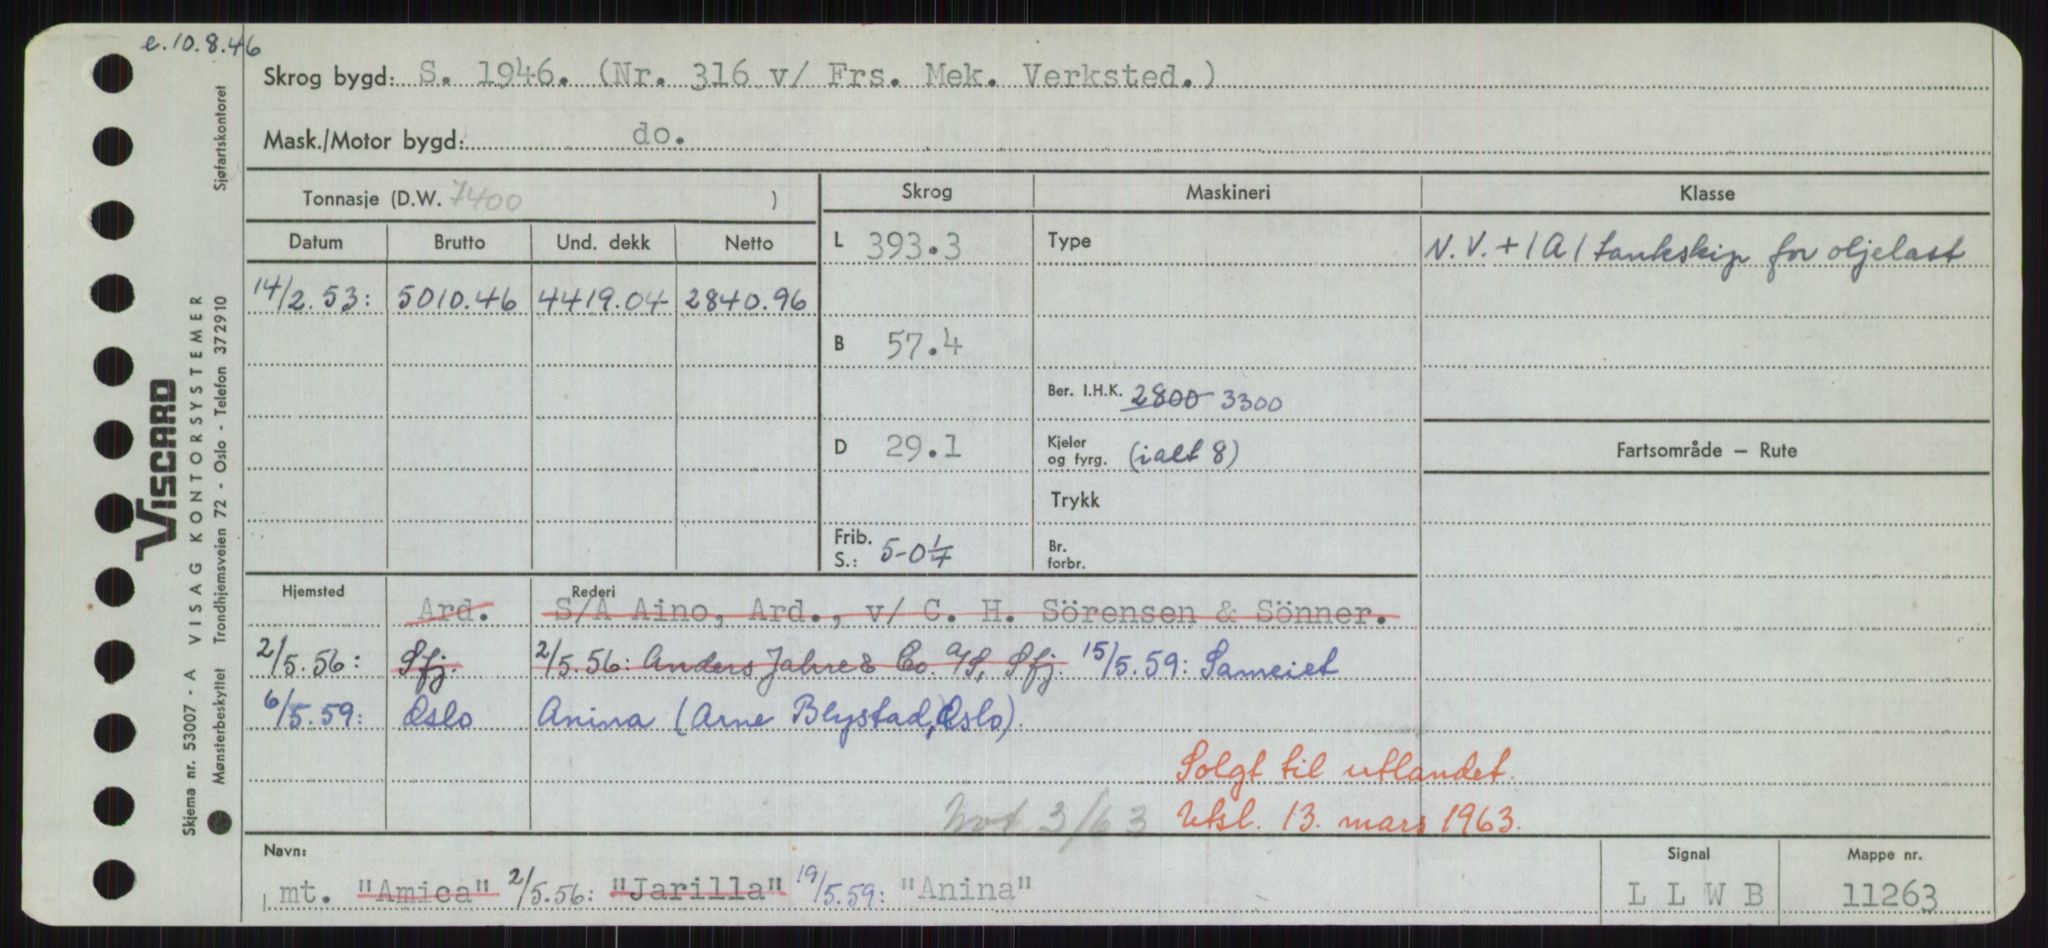 e. 10.8.46
Skrog bygd: S. 1946. (Nr. 316 v/ Frs. Mek. Verksted.)
Mask./Motor bygd: do.
Tonnasje (D.W. 7400 )
Datum Brutto Und. dekk Netto
14/2. 53: 5010.46 4419.04 2840.96
Skrog Maskineri Klasse
L 393.3 Type N. V. + 1 A 1 tankskip for oljelast
B 57.4
Ber. I.H.K. 2800 3300
D 29.1 Kjeler og fyrg. (ialt 8)
Fartsområde – Rute
Trykk
Frib. S.: 5-0¼ Br. forbr.
Hjemsted Rederi
Ard. S/A Aino, Ard., v/ C. H. Sörensen & Sönner.
2/5.56: Sfj. 2/5.56: Anders Jahre & Co. A/S, Sfj. 15/5.59: Sameiet
6/5.59: Oslo Anina (Arne Blystad, Oslo).
Solgt til utlandet.
not 3/63 Utsl. 13. mars 1963.
Navn: Signal Mappe nr.
mt. "Amica" 2/5.56: "Jarilla" 19/5.59: "Anina" L L W B 11263
VISCARD
Skjema nr. 53007 - A VISAG KONTORSYSTEMER
Mønsterbeskyttet Trondhjemsveien 72 - Oslo - Telefon 372910 Sjøfartskontoret